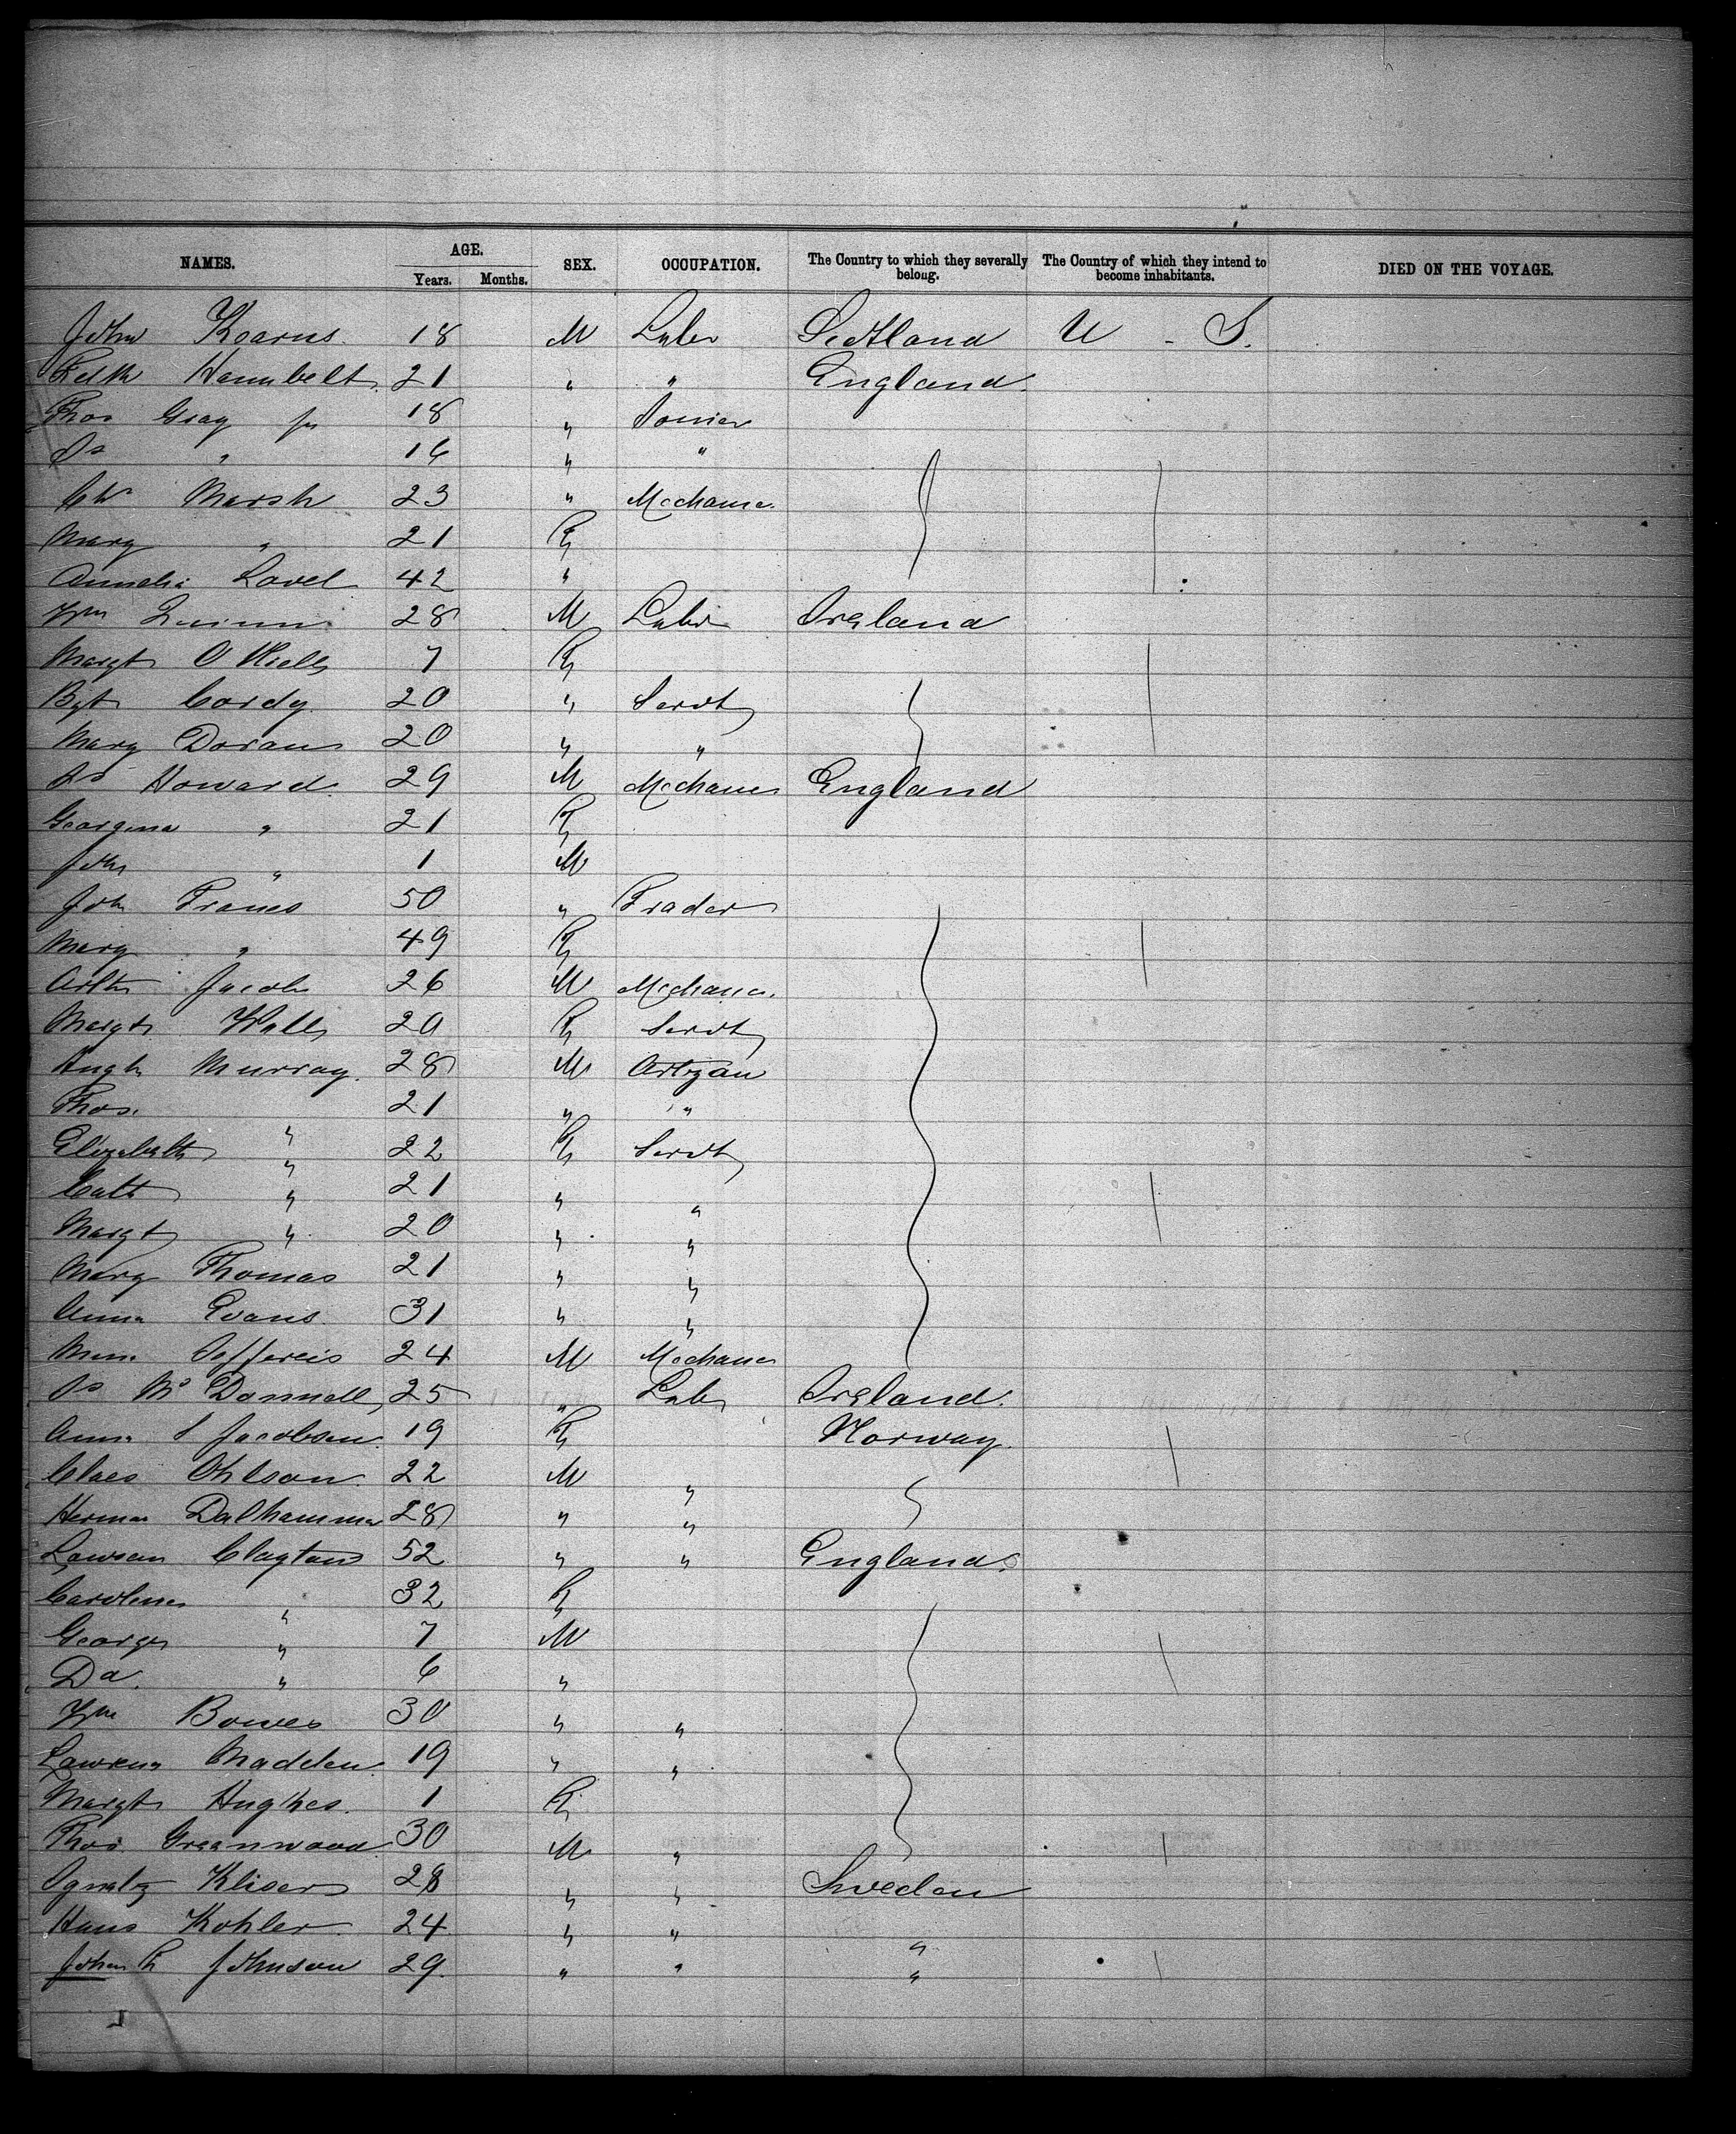 NAMES. AGE. SEX. OCCUPATION. The Country to which they severally belong. The Country of which they intend to become inhabitants. DIED ON THE VOYAGE.
Years. Months.
John Kearns 18 M Labr Scotland U - S.
21 " " England
Thos Gray jr 18 " Joiner
" 16 " "
Marsh 23 " Mechanic
Mary " 21 F
Lovel 42 "
Wm Quinn 28 M Labr Ireland
Margt 7 F
Bgt Cordy 20 " Servt
Mary Doran 20 " "
Js Howard 29 M Mechanic England
Georgina " 21 F
John " 1 M
John 50 " Trader
Mary " 49 F
Arthr Jacobs 26 M Mechanic
Margt 20 F Servt
Hugh Murray 28 M Artizan
Thos. " 21 " "
Elizabeth " 22 F Servt
Cath " 21 " "
Margt " 20 " "
Mary Thomas 21 " "
Anna Evans 31 " "
24 M Mechanic
Js McDonnell 25 " Labr Ireland.
Anna S Jacobsen 19 F Norway.
Claes Ohlson 22 M "
Herman Dalhammar 28 " "
Lawson Clayton 52 " " England
Caroline " 32 F
George " 7 M
Da. " 6 "
Wm Bowes 30 " "
Lawrence Madden 19 " "
Margt Hughes. 1 F
Thos. Greenwood 30 M "
Ignatz Kliser 28 " " Sweden
Hans Kohler 24 " " "
Johan F Johnson 29 " " "